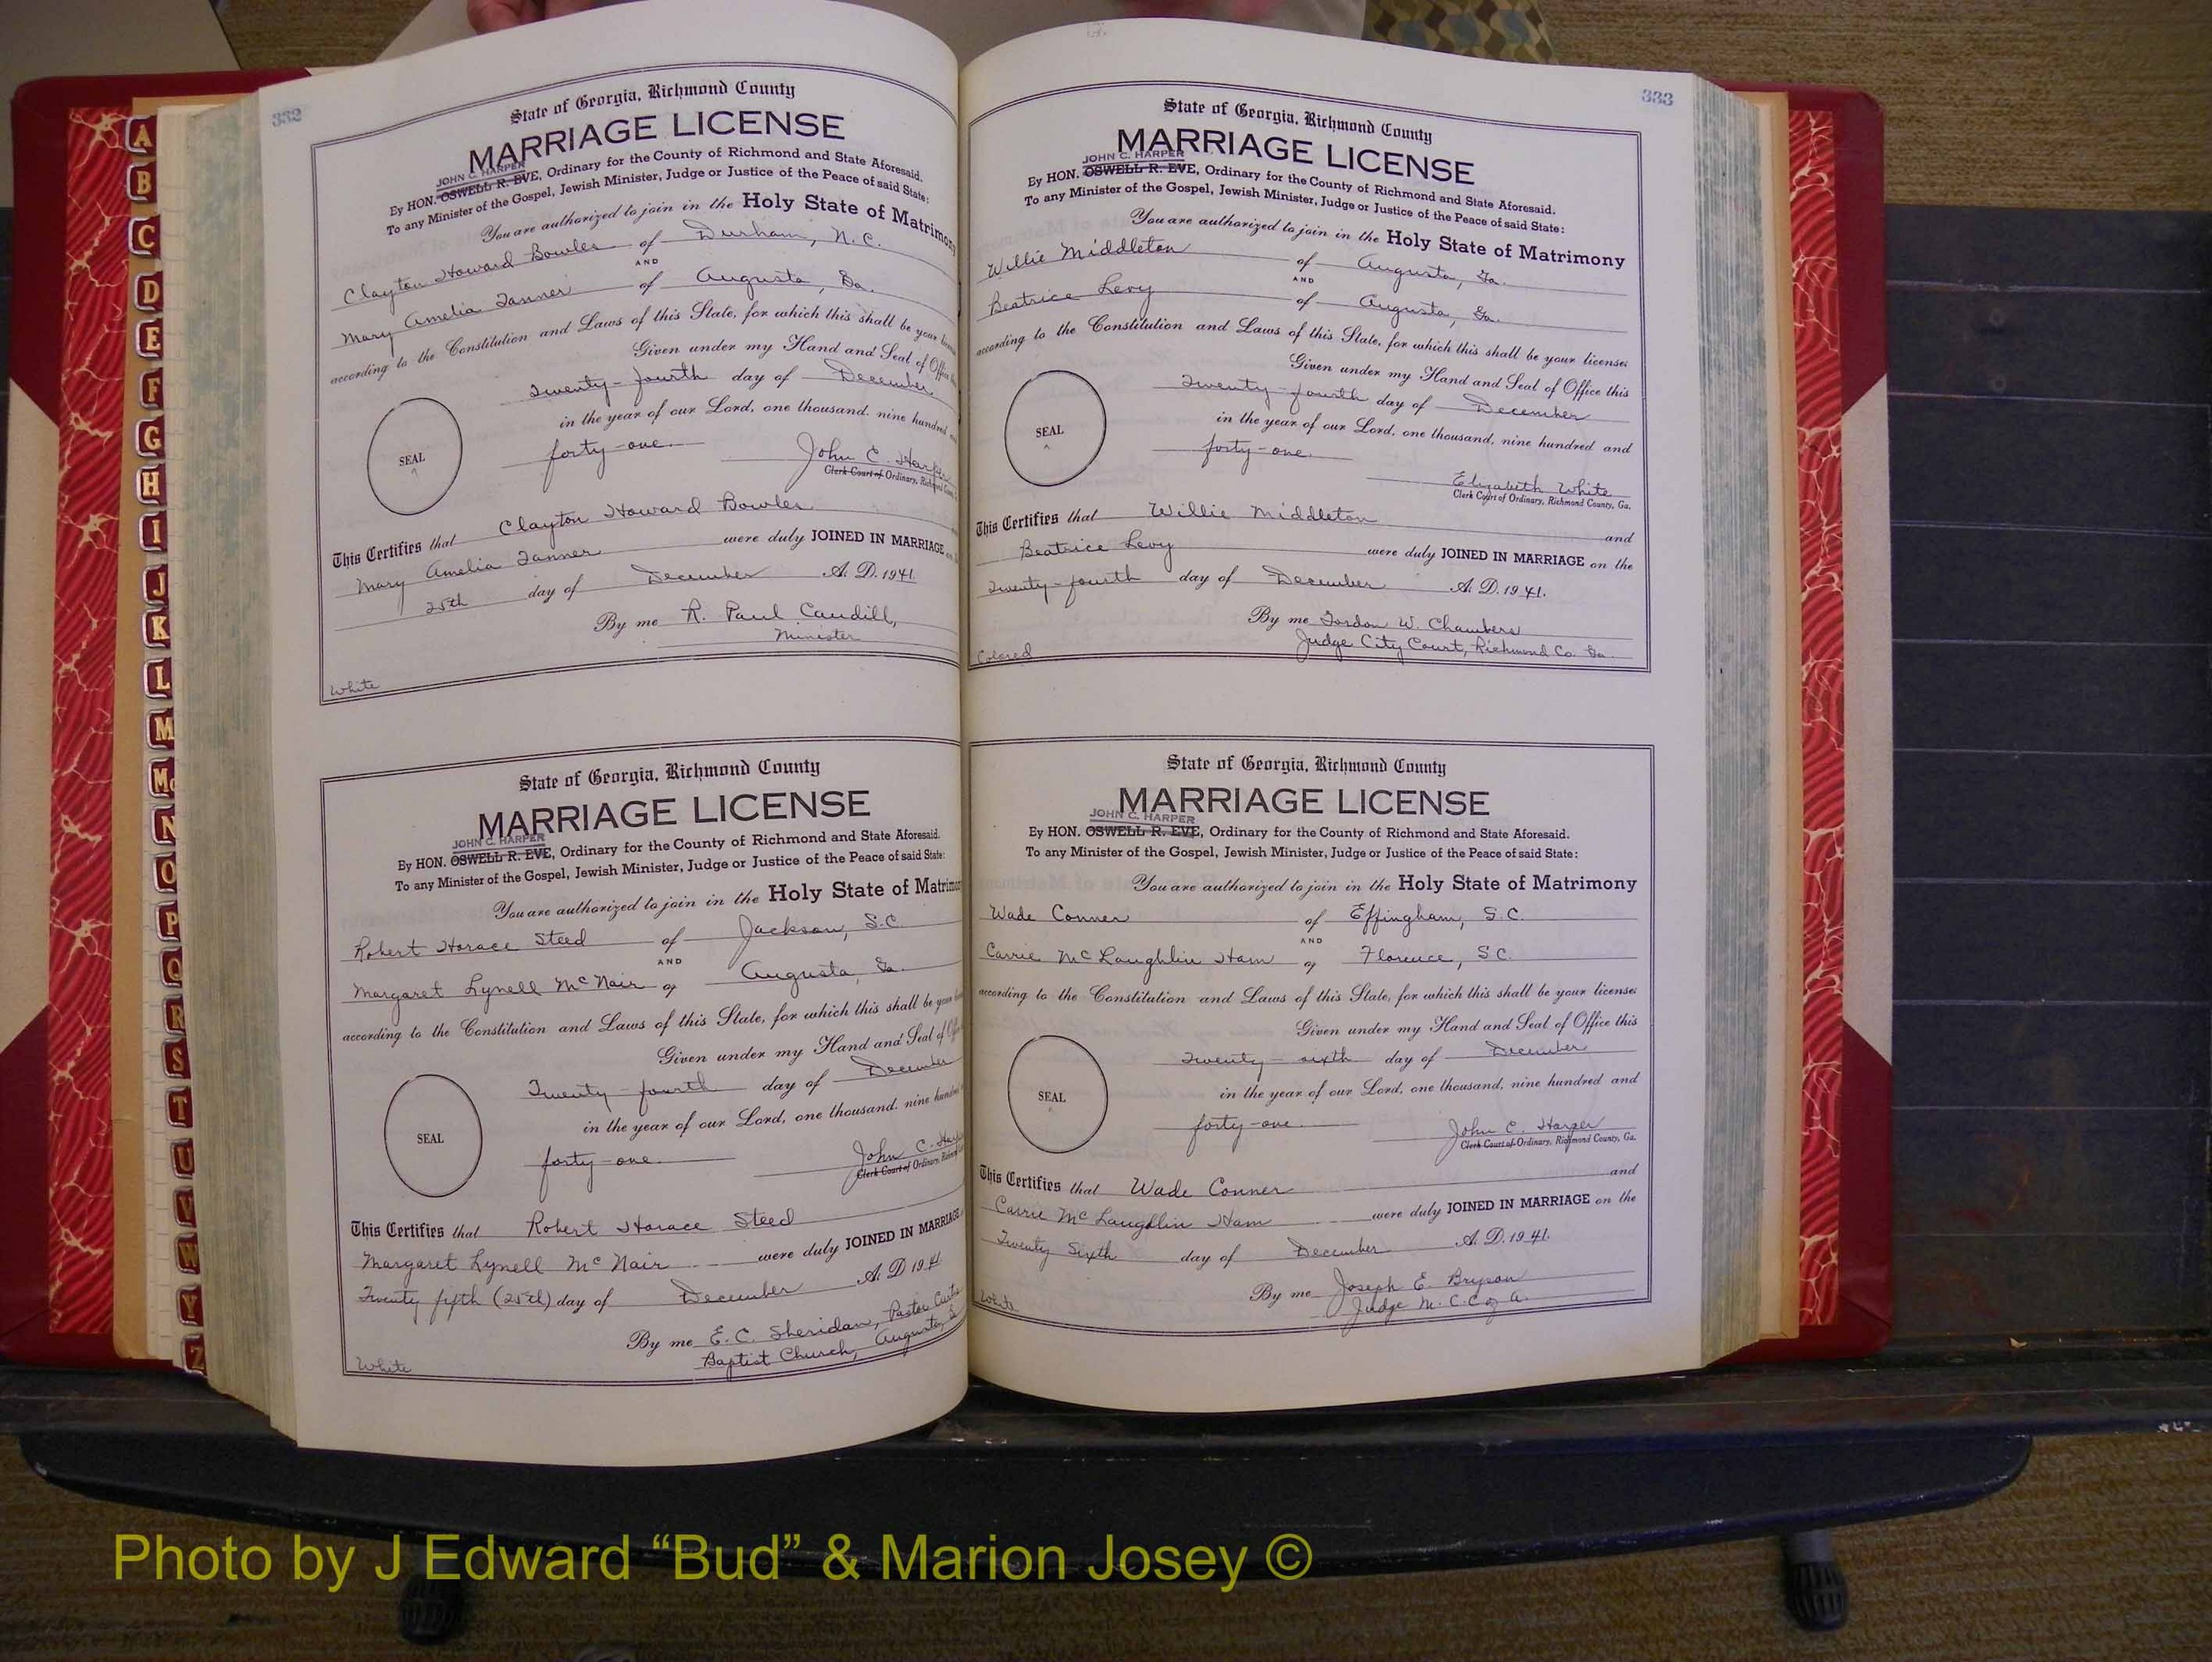 A
B
C
D
E
F
G
H
I
J
K
L
M
Mc
N
O
P
Q
R
S
T
U
V
W
Y
Z
332
State of Georgia, Richmond County
MARRIAGE LICENSE
JOHN C. HARPER
By HON. OSWELL R. EVE, Ordinary for the County of Richmond and State Aforesaid.
To any Minister of the Gospel, Jewish Minister, Judge or Justice of the Peace of said State:
You are authorized to join in the Holy State of Matrimony
Clayton Howard Bowles of Durham, N.C.
AND
Mary Amelia Tanner of Augusta, Ga.
according to the Constitution and Laws of this State, for which this shall be your
Given under my Hand and Seal of Office
Twenty-fourth day of December
in the year of our Lord, one thousand, nine hundred
forty-one.
SEAL
John C. Harper
Clerk Court of Ordinary,
This Certifies that Clayton Howard Bowles
Mary Amelia Tanner were duly JOINED IN MARRIAGE
25th day of December A. D. 1941.
By me R. Paul Caudill,
Minister
White
State of Georgia, Richmond County
MARRIAGE LICENSE
JOHN C. HARPER
By HON. OSWELL R. EVE, Ordinary for the County of Richmond and State Aforesaid.
To any Minister of the Gospel, Jewish Minister, Judge or Justice of the Peace of said State:
You are authorized to join in the Holy State of
Robert Horace Steed of Jackson, S.C.
AND
Margaret Lynell McNair of Augusta, Ga.
according to the Constitution and Laws of this State, for which this shall be your
Given under my Hand and Seal of
Twenty-fourth day of December
in the year of our Lord, one thousand, nine
forty-one.
SEAL
John C.
Clerk Court of Ordinary,
This Certifies that Robert Horace Steed
Margaret Lynell McNair were duly JOINED IN MARRIAGE
Twenty fifth (25th) day of December A. D. 1941
By me E. C. Sheridan, Pastor Curtis
Baptist Church, Augusta,
White
333
State of Georgia, Richmond County
MARRIAGE LICENSE
JOHN C. HARPER
By HON. OSWELL R. EVE, Ordinary for the County of Richmond and State Aforesaid.
To any Minister of the Gospel, Jewish Minister, Judge or Justice of the Peace of said State:
You are authorized to join in the Holy State of Matrimony
Willie Middleton of Augusta, Ga.
AND
Beatrice Levy of Augusta, Ga.
according to the Constitution and Laws of this State, for which this shall be your license;
Given under my Hand and Seal of Office this
Twenty-fourth day of December
in the year of our Lord, one thousand, nine hundred and
forty-one.
SEAL
Elizabeth White
Clerk Court of Ordinary, Richmond County, Ga.
This Certifies that Willie Middleton and
Beatrice Levy were duly JOINED IN MARRIAGE on the
Twenty-fourth day of December A. D. 1941.
By me Gordon W. Chambers
Judge City Court, Richmond Co. Ga.
Colored
State of Georgia, Richmond County
MARRIAGE LICENSE
JOHN C. HARPER
By HON. OSWELL R. EVE, Ordinary for the County of Richmond and State Aforesaid.
To any Minister of the Gospel, Jewish Minister, Judge or Justice of the Peace of said State:
You are authorized to join in the Holy State of Matrimony
Wade Conner of Effingham, S.C.
AND
Carrie McLaughlin Ham of Florence, S.C.
according to the Constitution and Laws of this State, for which this shall be your license;
Given under my Hand and Seal of Office this
Twenty-sixth day of December
in the year of our Lord, one thousand, nine hundred and
forty-one.
SEAL
John C. Harper
Clerk Court of Ordinary, Richmond County, Ga.
This Certifies that Wade Conner and
Carrie McLaughlin Ham were duly JOINED IN MARRIAGE on the
Twenty Sixth day of December A. D. 1941.
By me Joseph E. Bryson
Judge M.C.C of A.
White
Photo by J Edward “Bud” & Marion Josey ©